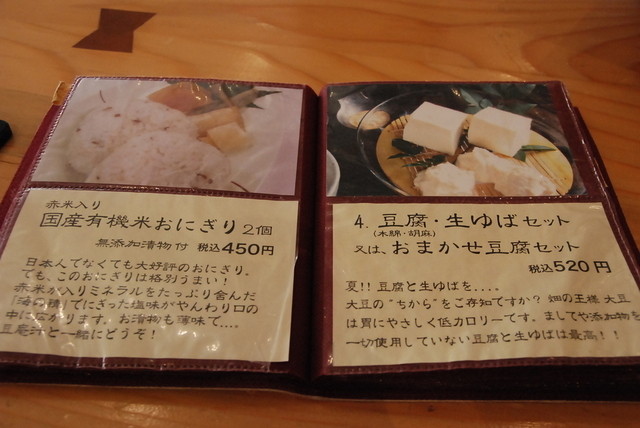 赤米入り
国産有機米おにぎり 2個
無添加漬物付 税込450円
日本人でなくても大好評のおにぎり。
でも、このおにぎりは格別うまい!
赤米が入りミネラルをたっぷり含んだ
「海の精」でにぎった塩味がやんわり口の
中に広がります。お漬物も薄味で....
豆庵汁と一緒にどうぞ!
4. 豆腐・生ゆばセット
(木綿・胡麻)
又は、おまかせ豆腐セット
税込520円
夏!! 豆腐と生ゆばを....。
大豆の"ちから"をご存知ですか? 畑の王様 大豆
は胃にやさしく低カロリーです。ましてや添加物を
一切使用していない豆腐と生ゆばは最高!!